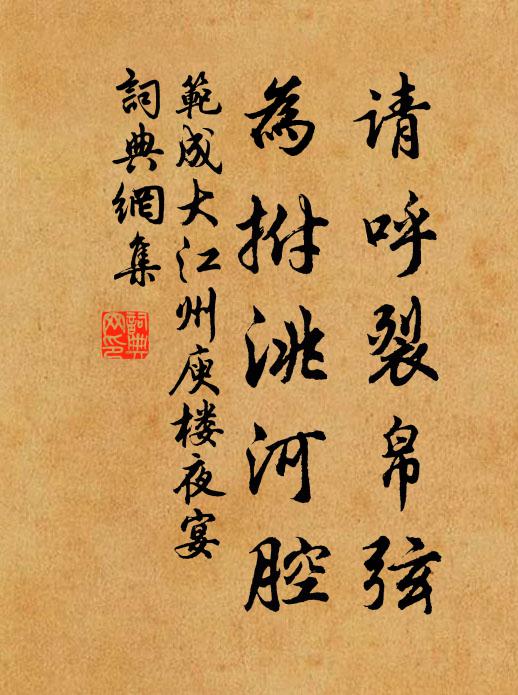 请呼裂帛弦
為拊洮河腔
範成大江州庾楼夜宴
詞典網集